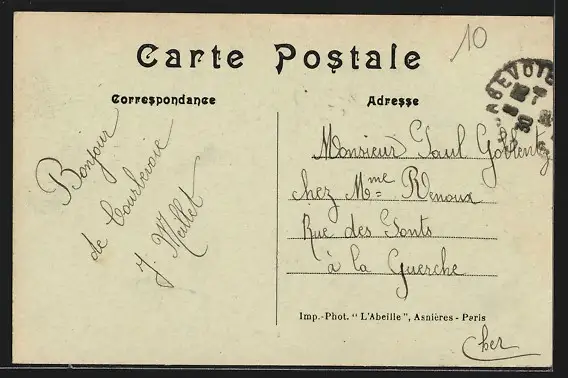 10
Carte Postale
Correspondance
Adresse
Bonjour
de Courbevoie
J. Mellet
Monsieur Paul Goblentz
chez Mme Renoux
Rue des Ponts
à la Guerche
Cher
Imp.-Phot. "L'Abeille", Asnières - Paris